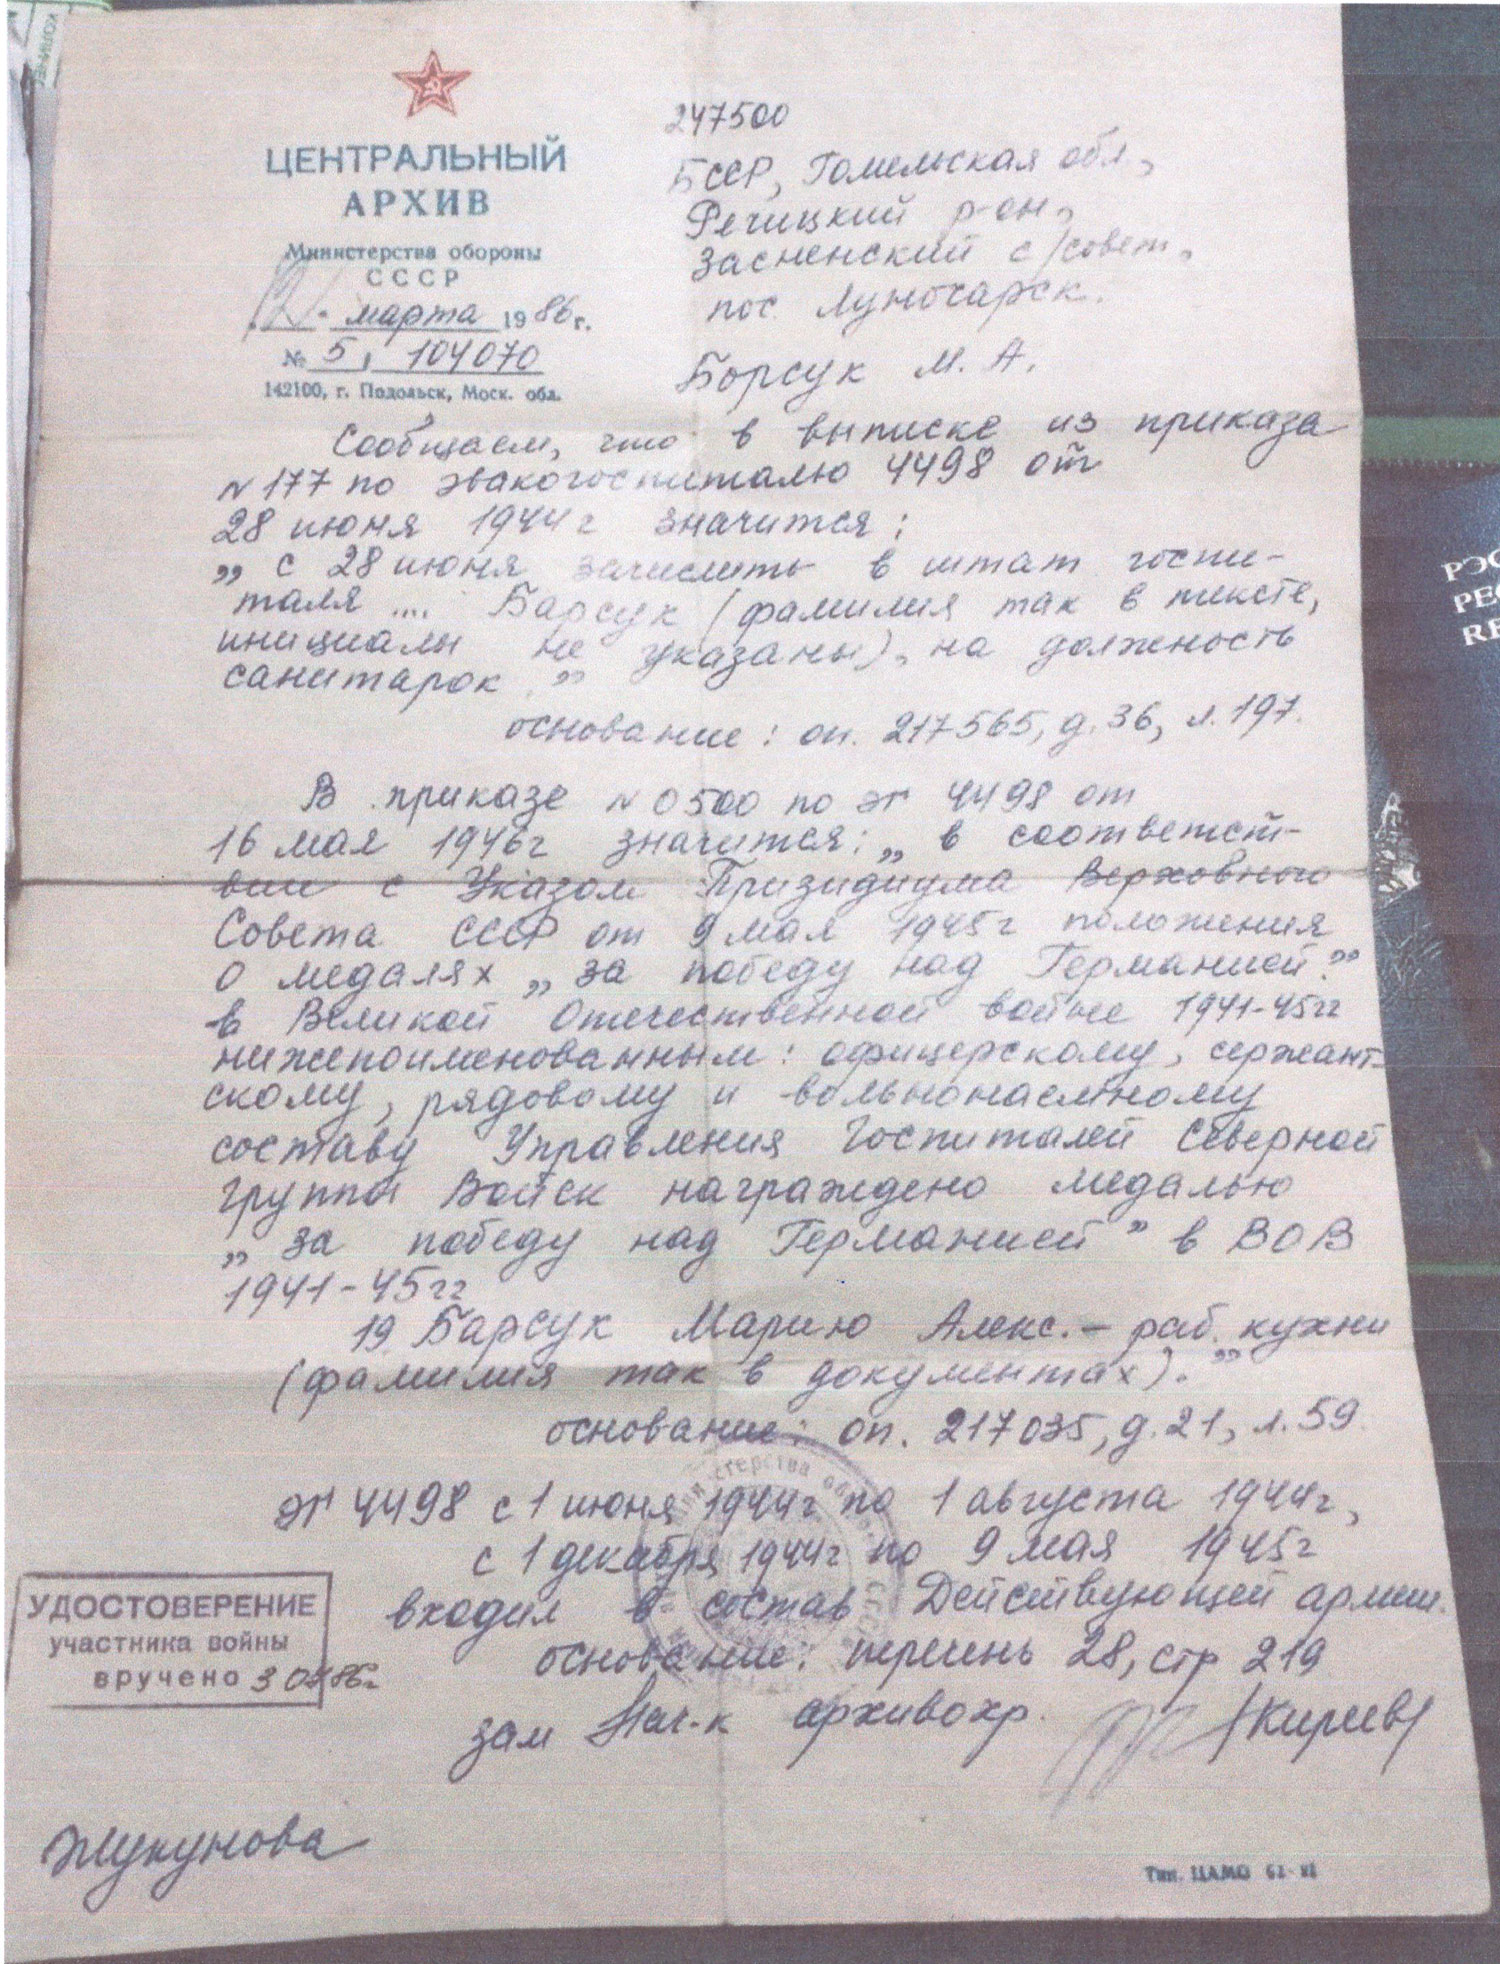 ЦЕНТРАЛЬНЫЙ
АРХИВ
Министерства обороны
СССР
12 марта 1986 г.
№ 5, 104070
142100, г. Подольск, Моск. обл.
247500
БССР, Гомельская обл,
Речицкий р-он,
Засненский с/совет,
пос. Луночарск.
Борсук М. А.
Сообщаем, что в выписке из приказа
N 177 по эвакогоспиталю 4498 от
28 июня 1944г значится:
„ с 28 июня зачислить в штат госпи-
таля .... Барсук (фамилия так в тексте,
инициалы не указаны), на должность
санитарок "
основание: оп. 217565, д. 36, л. 197.
В приказе N 0500 по эг 4498 от
16 мая 1946г значится: „ в соответст-
вии с Указом Призидиума Верховного
Совета СССР от 9 мая 1945г положения
о медалях „ за победу над Германией"
в Великой Отечественной войне 1941-45гг
нижепоименованным: офицерскому, сержант-
скому, рядовому и вольнонаемному
составу Управления Госпиталей Северной
группы Войск награждено медалью
„ за победу над Германией" в ВОВ
1941-45гг
19. Барсук Марию Алекс. - раб. кухни
(фамилия так в документах)."
основание: оп. 217035, д. 21, л. 59.
ЭГ 4498 с 1 июня 1944г по 1 августа 1944г,
с 1 декабря 1944г по 9 мая 1945г
входил в состав Действующей армии.
основание: перечень 28, стр 219
зам Нач-к архивохр. /Кирев/
УДОСТОВЕРЕНИЕ
участника войны
вручено 3 0 86г
Жукунова
Тип. ЦАМО
РЭС
РЕС
RE